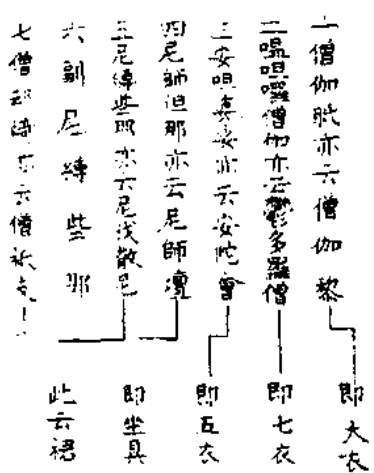 一僧伽胝亦云僧伽黎
即大衣
二嗢呾囉僧伽亦云鬱多羅僧
即七衣
三安呾婆娑亦云安陀會
即五衣
四尼師但那亦云尼師壇
即坐具
五尼縛些那亦云尼伐散尼
此云裙
六副尼縛些那
七僧却𫿞亦云僧祇支